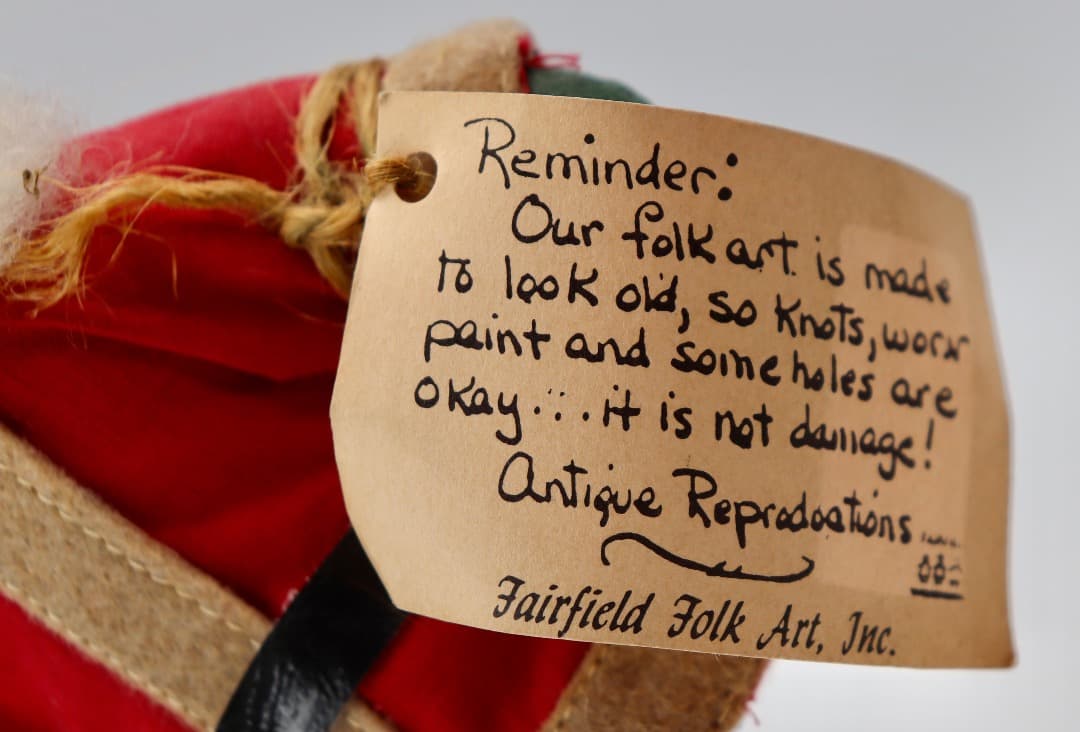 Reminder:
Our folk art is made
to look old, so knots, worn
paint and some holes are
okay... it is not damage!
Antique Reproductions....
Fairfield Folk Art, Inc.